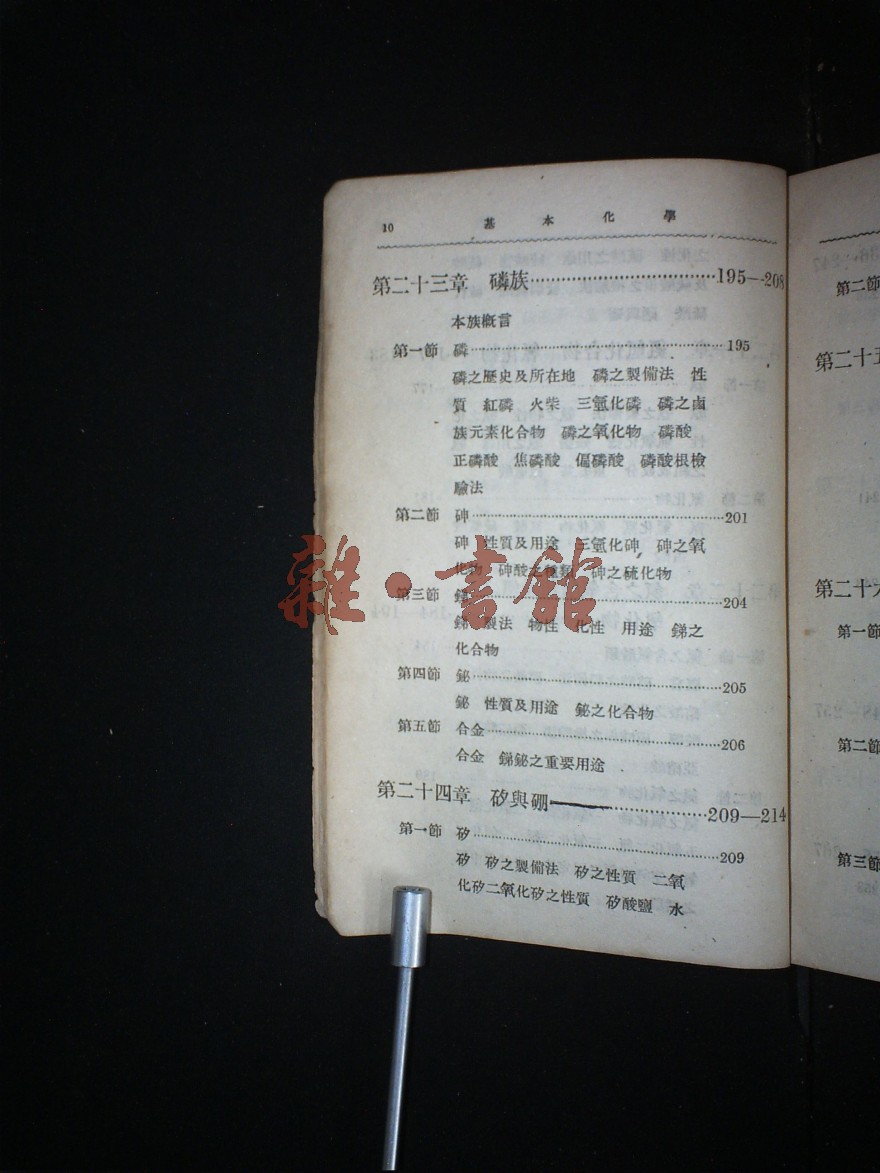 10 基本化學
第二十三章 磷族……………………195—208
本族概言
第一節 磷……………………195
磷之歷史及所在地 磷之製備法 性
質 紅磷 火柴 三氫化磷 磷之鹵
族元素化合物 磷之氧化物 磷酸
正磷酸 焦磷酸 偏磷酸 磷酸根檢
驗法
第二節 砷……………………201
砷 性質及用途 三氫化砷 砷之氧
化物 砷酸之種類 砷之硫化物
第三節 銻……………………204
銻 製法 物性 化性 用途 銻之
化合物
第四節 鉍……………………205
鉍 性質及用途 鉍之化合物
第五節 合金……………………206
合金 銻鉍之重要用途
第二十四章 矽與硼……………………209—214
第一節 矽……………………209
矽 矽之製備法 矽之性質 二氧
化矽二氧化矽之性質 矽酸鹽 水
雜·書館
第二節
第二十五
第二十六
第一節
第二節
第三節